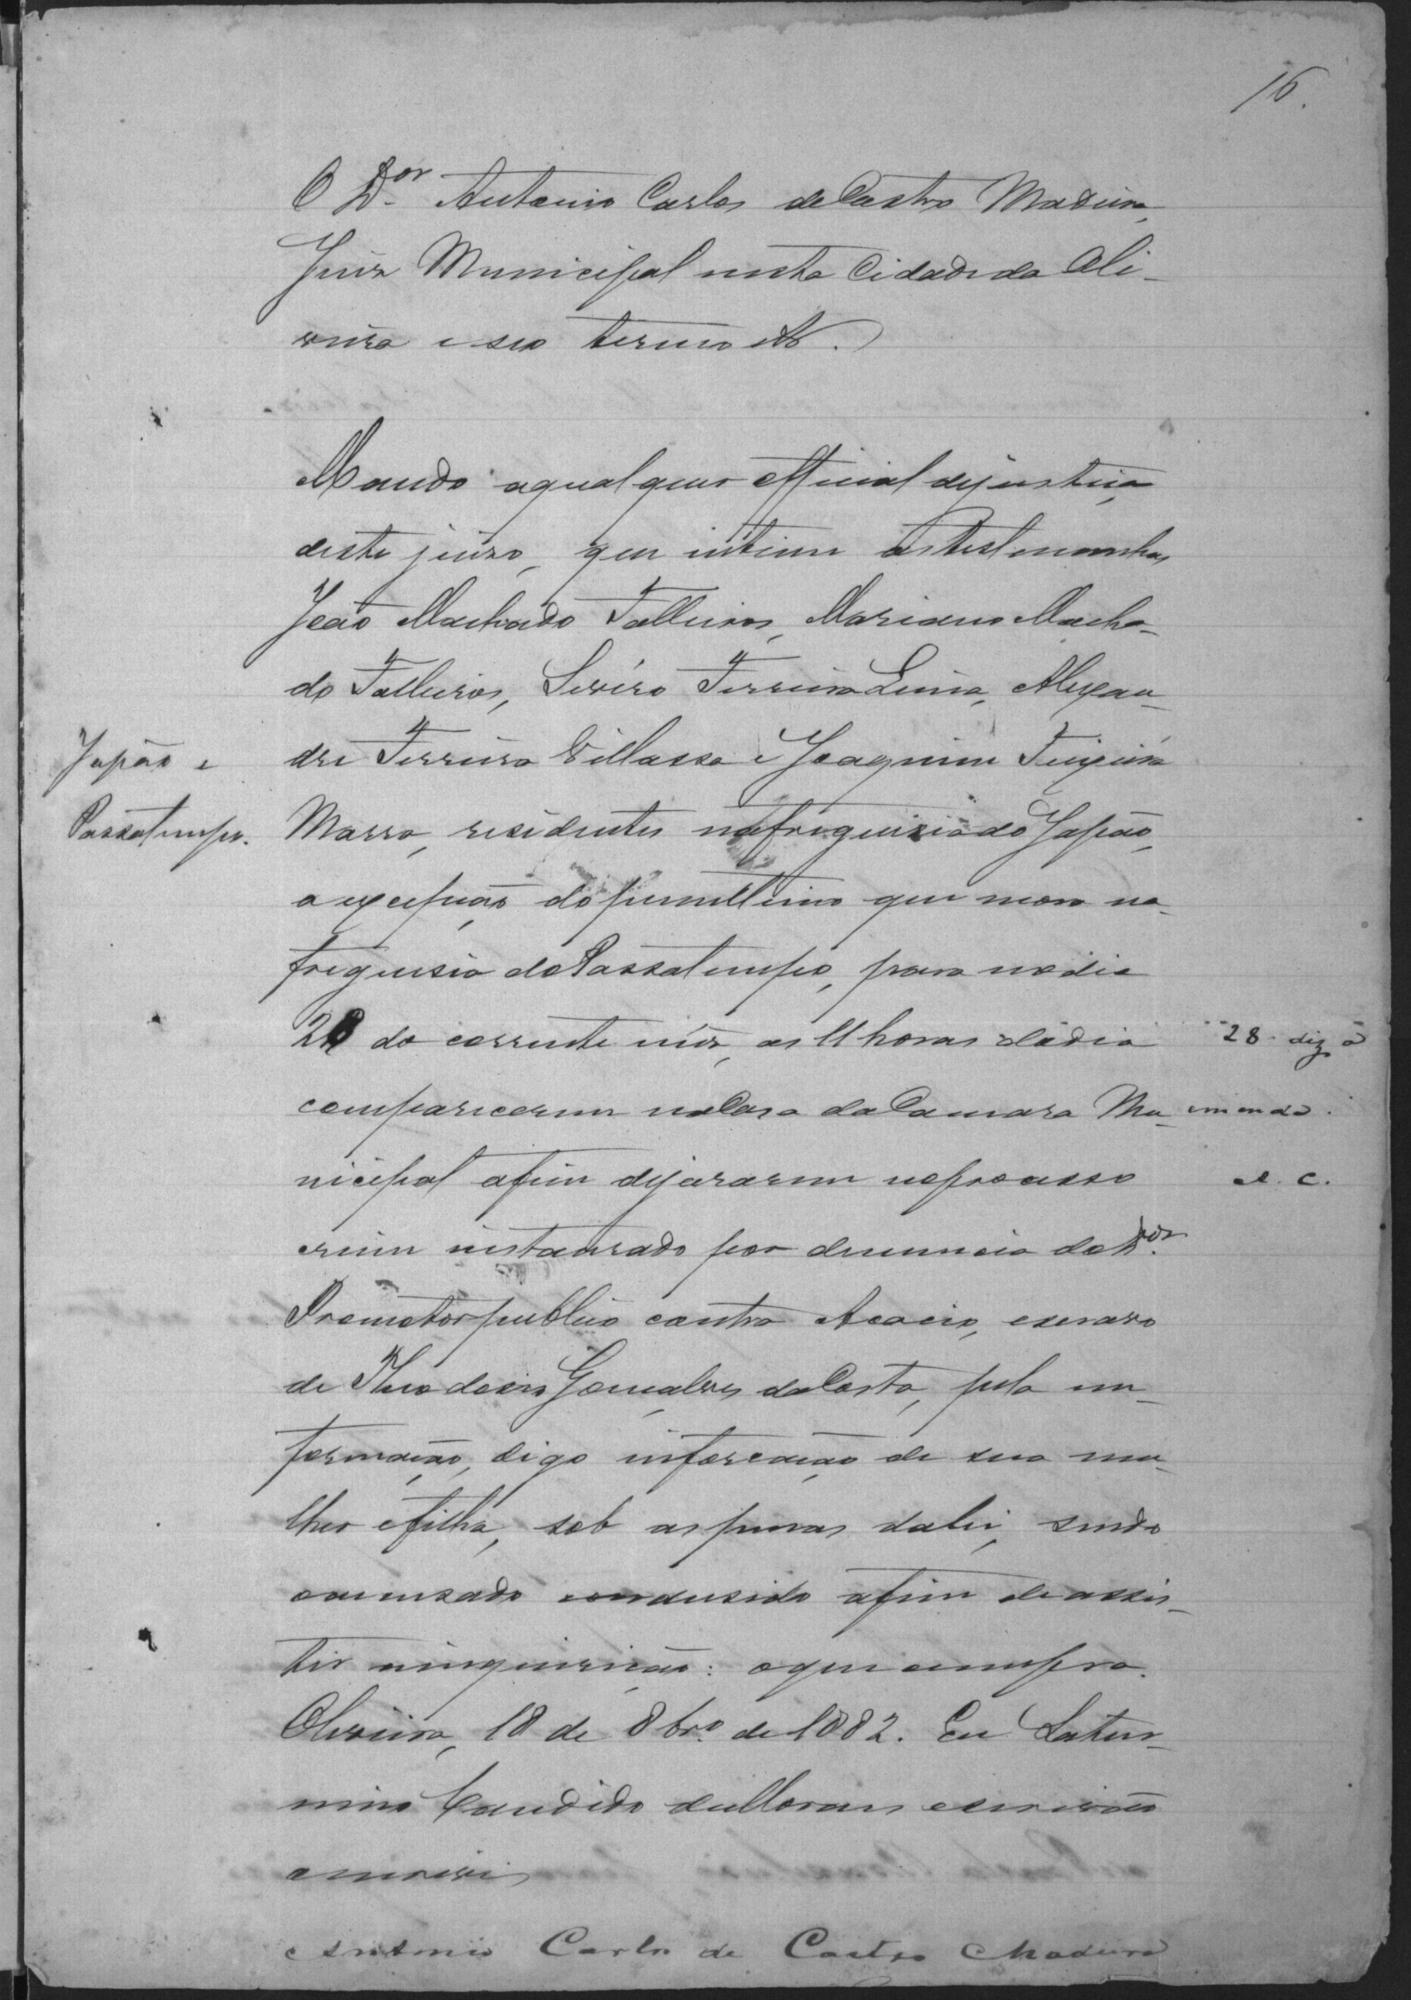 16.
O D.or Antonio Carlos de Castro Madeira,
Juiz Municipal nesta Cidade da Oli-
veira e seo termo etc.
Mando a qualquer official de justiça,
deste juizo, que intime as testemunhas
João Machado Talleiros, Mariano Macha-
do Talleiros, Severo Ferreira Leiria, Alexan-
Japão e
dre Ferreira Villassa e Joaquim Teixeira
Passatempo.
Marra, residentes na freguizia do Japão,
a excepção do penultimo que mora na
freguesia do Passatempo, para no dia
28 do corrente mez, as 11 horas do dia
28 digo a
comparecerem na Casa da Camara Mu-
emenda.
nicipal afim de jurarem no processo
e. C.
crime instaurado por denuncia do D.or
Promotor publico contra Acacio, escravo
de Theodosio Gonçalves da Costa, pela in-
formação, digo inforcação de sua mu-
lher e filha, sob as penas da lei, sendo
o accusado condusido afim de assis-
tir a inquirição: o que cumpra.
Oliveira, 18 de 8br.o de 1882. Eu Satur-
nino Candido de Moraes escrivão
escrevi
Antonio Carlos de Castro Madeira